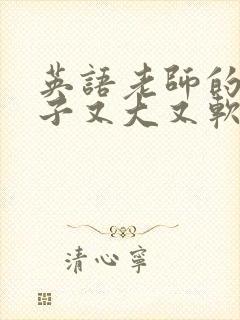 英語老師的
子又大又軟
清心寧